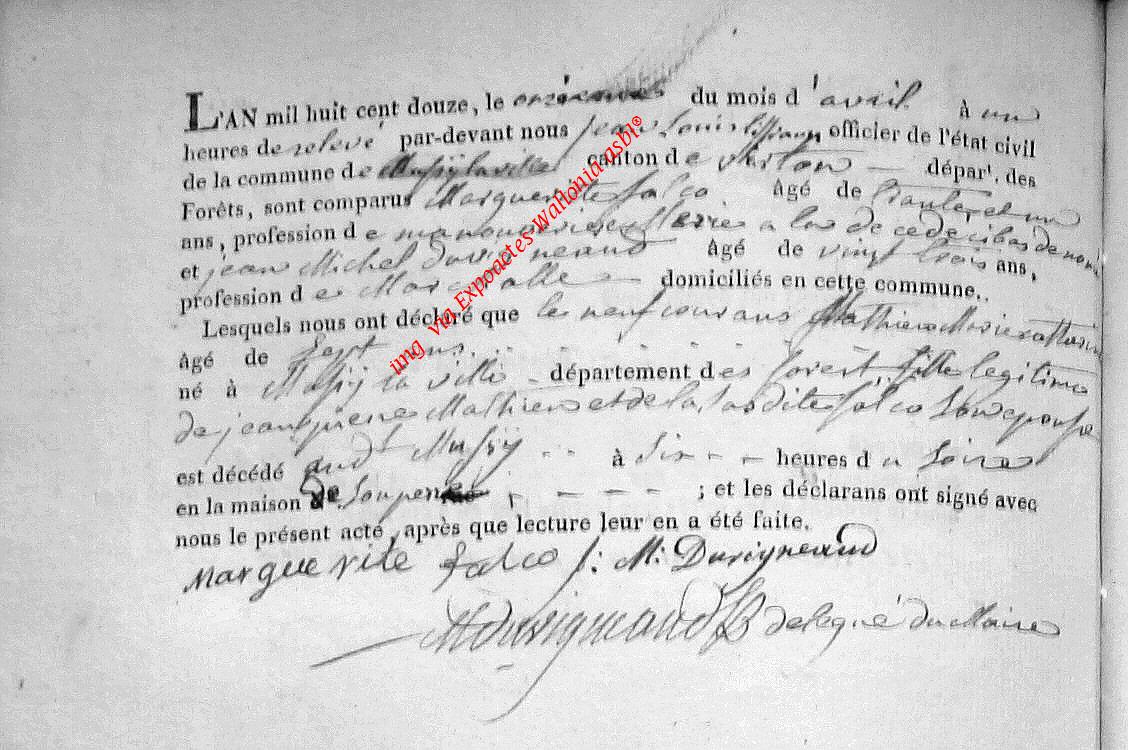 L'AN mil huit cent douze, le onzieme du mois d'avril à un
heures de relevé par-devant nous jean Louis officier de l'état civil
de la commune de Mussÿ la ville canton de virton — départ. des
Forêts, sont comparus Marguerite falco âgé de trante et un
ans, profession de manouvriere
et jean Michel Duvigneaud âgé de vingt trois ans,
profession de Marechalle domiciliés en cette commune..
Lesquels nous ont déclaré que le neuf courans Mathieu
âgé de Sept ans
né à Mussÿ la ville département des forest fille legitime
de jean pierre Mathieu et de la susdite falco Son epouse
est décédé aud.t Mussÿ à Six heures du Soire
en la maison de Son per ; et les déclarans ont signé avec
nous le présent acte, après que lecture leur en a été faite.
Marguerite falco J: M: Duvigneaud
Mduvigneaud delegué du Maire
img via Expoactes Wallonia asbl®